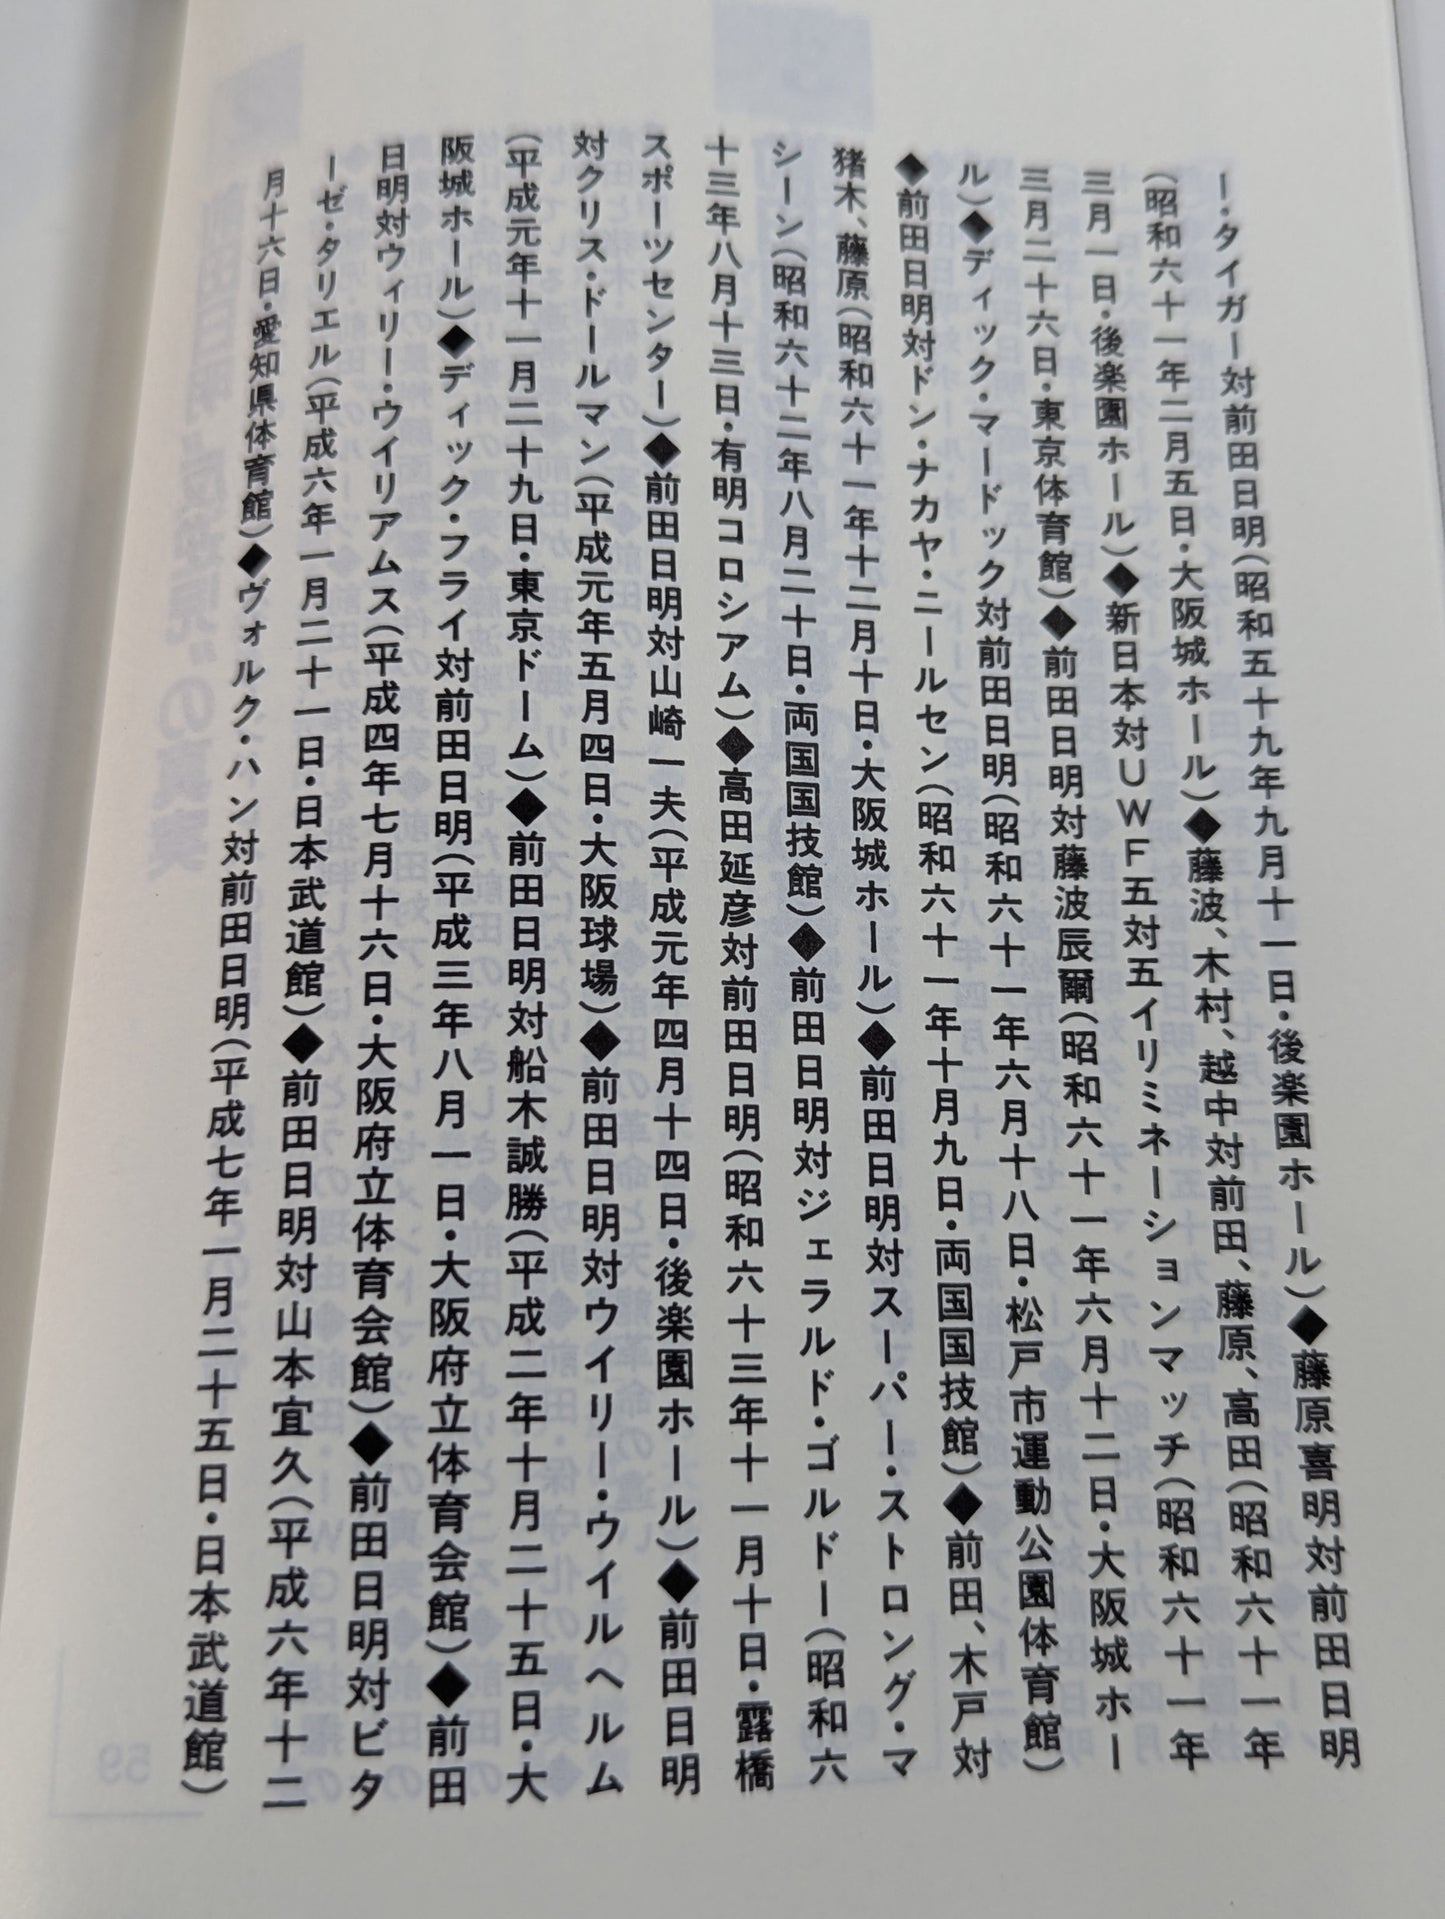 ー・タイガー対前田日明(昭和五十九年九月十一日・後楽園ホール)◆藤原喜明対前田日明
(昭和六十一年二月五日・大阪城ホール)◆藤波、木村、越中対前田、藤原、高田(昭和六十一年
三月一日・後楽園ホール)◆新日本対UWF五対五イリミネーションマッチ(昭和六十一年
三月二十六日・東京体育館)◆前田日明対藤波辰爾(昭和六十一年六月十二日・大阪城ホー
ル)◆ディック・マードック対前田日明(昭和六十一年六月十八日・松戸市運動公園体育館)
◆前田日明対ドン・ナカヤ・ニールセン(昭和六十一年十月九日・両国国技館)◆前田、木戸対
猪木、藤原(昭和六十一年十二月十日・大阪城ホール)◆前田日明対スーパー・ストロング・マ
シーン(昭和六十二年八月二十日・両国国技館)◆前田日明対ジェラルド・ゴルドー(昭和六
十三年八月十三日・有明コロシアム)◆高田延彦対前田日明(昭和六十三年十一月十日・露橋
スポーツセンター)◆前田日明対山崎一夫(平成元年四月十四日・後楽園ホール)◆前田日明
対クリス・ドールマン(平成元年五月四日・大阪球場)◆前田日明対ウイリー・ウイルヘルム
(平成元年十一月二十九日・東京ドーム)◆前田日明対船木誠勝(平成二年十月二十五日・大
阪城ホール)◆ディック・フライ対前田日明(平成三年八月一日・大阪府立体育会館)◆前田
日明対ウィリー・ウイリアムス(平成四年七月十六日・大阪府立体育会館)◆前田日明対ビタ
ーゼ・タリエル(平成六年一月二十一日・日本武道館)◆前田日明対山本宜久(平成六年十二
月十六日・愛知県体育館)◆ヴォルク・ハン対前田日明(平成七年一月二十五日・日本武道館)